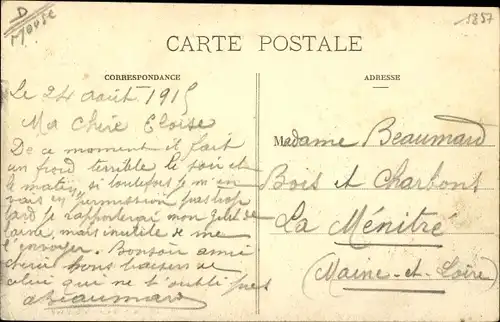 D
Meuse
5857
CARTE POSTALE
CORRESPONDANCE
ADRESSE
Le 24 août 1915
Ma Chère Eloise
De ce moment il fait
un froid terrible le soir et
le matin, si toutefois je m'en
vais en permission pas trop
tard je rapporterai mon gilet de
laine, mais inutile de me
l'envoyer. Bonsoir amie
chérie bons baisers de
celui qui ne t'oublie pas
Beaumard
Madame Beaumard
Bois et Charbons
La Ménitré
(Maine-et-Loire)